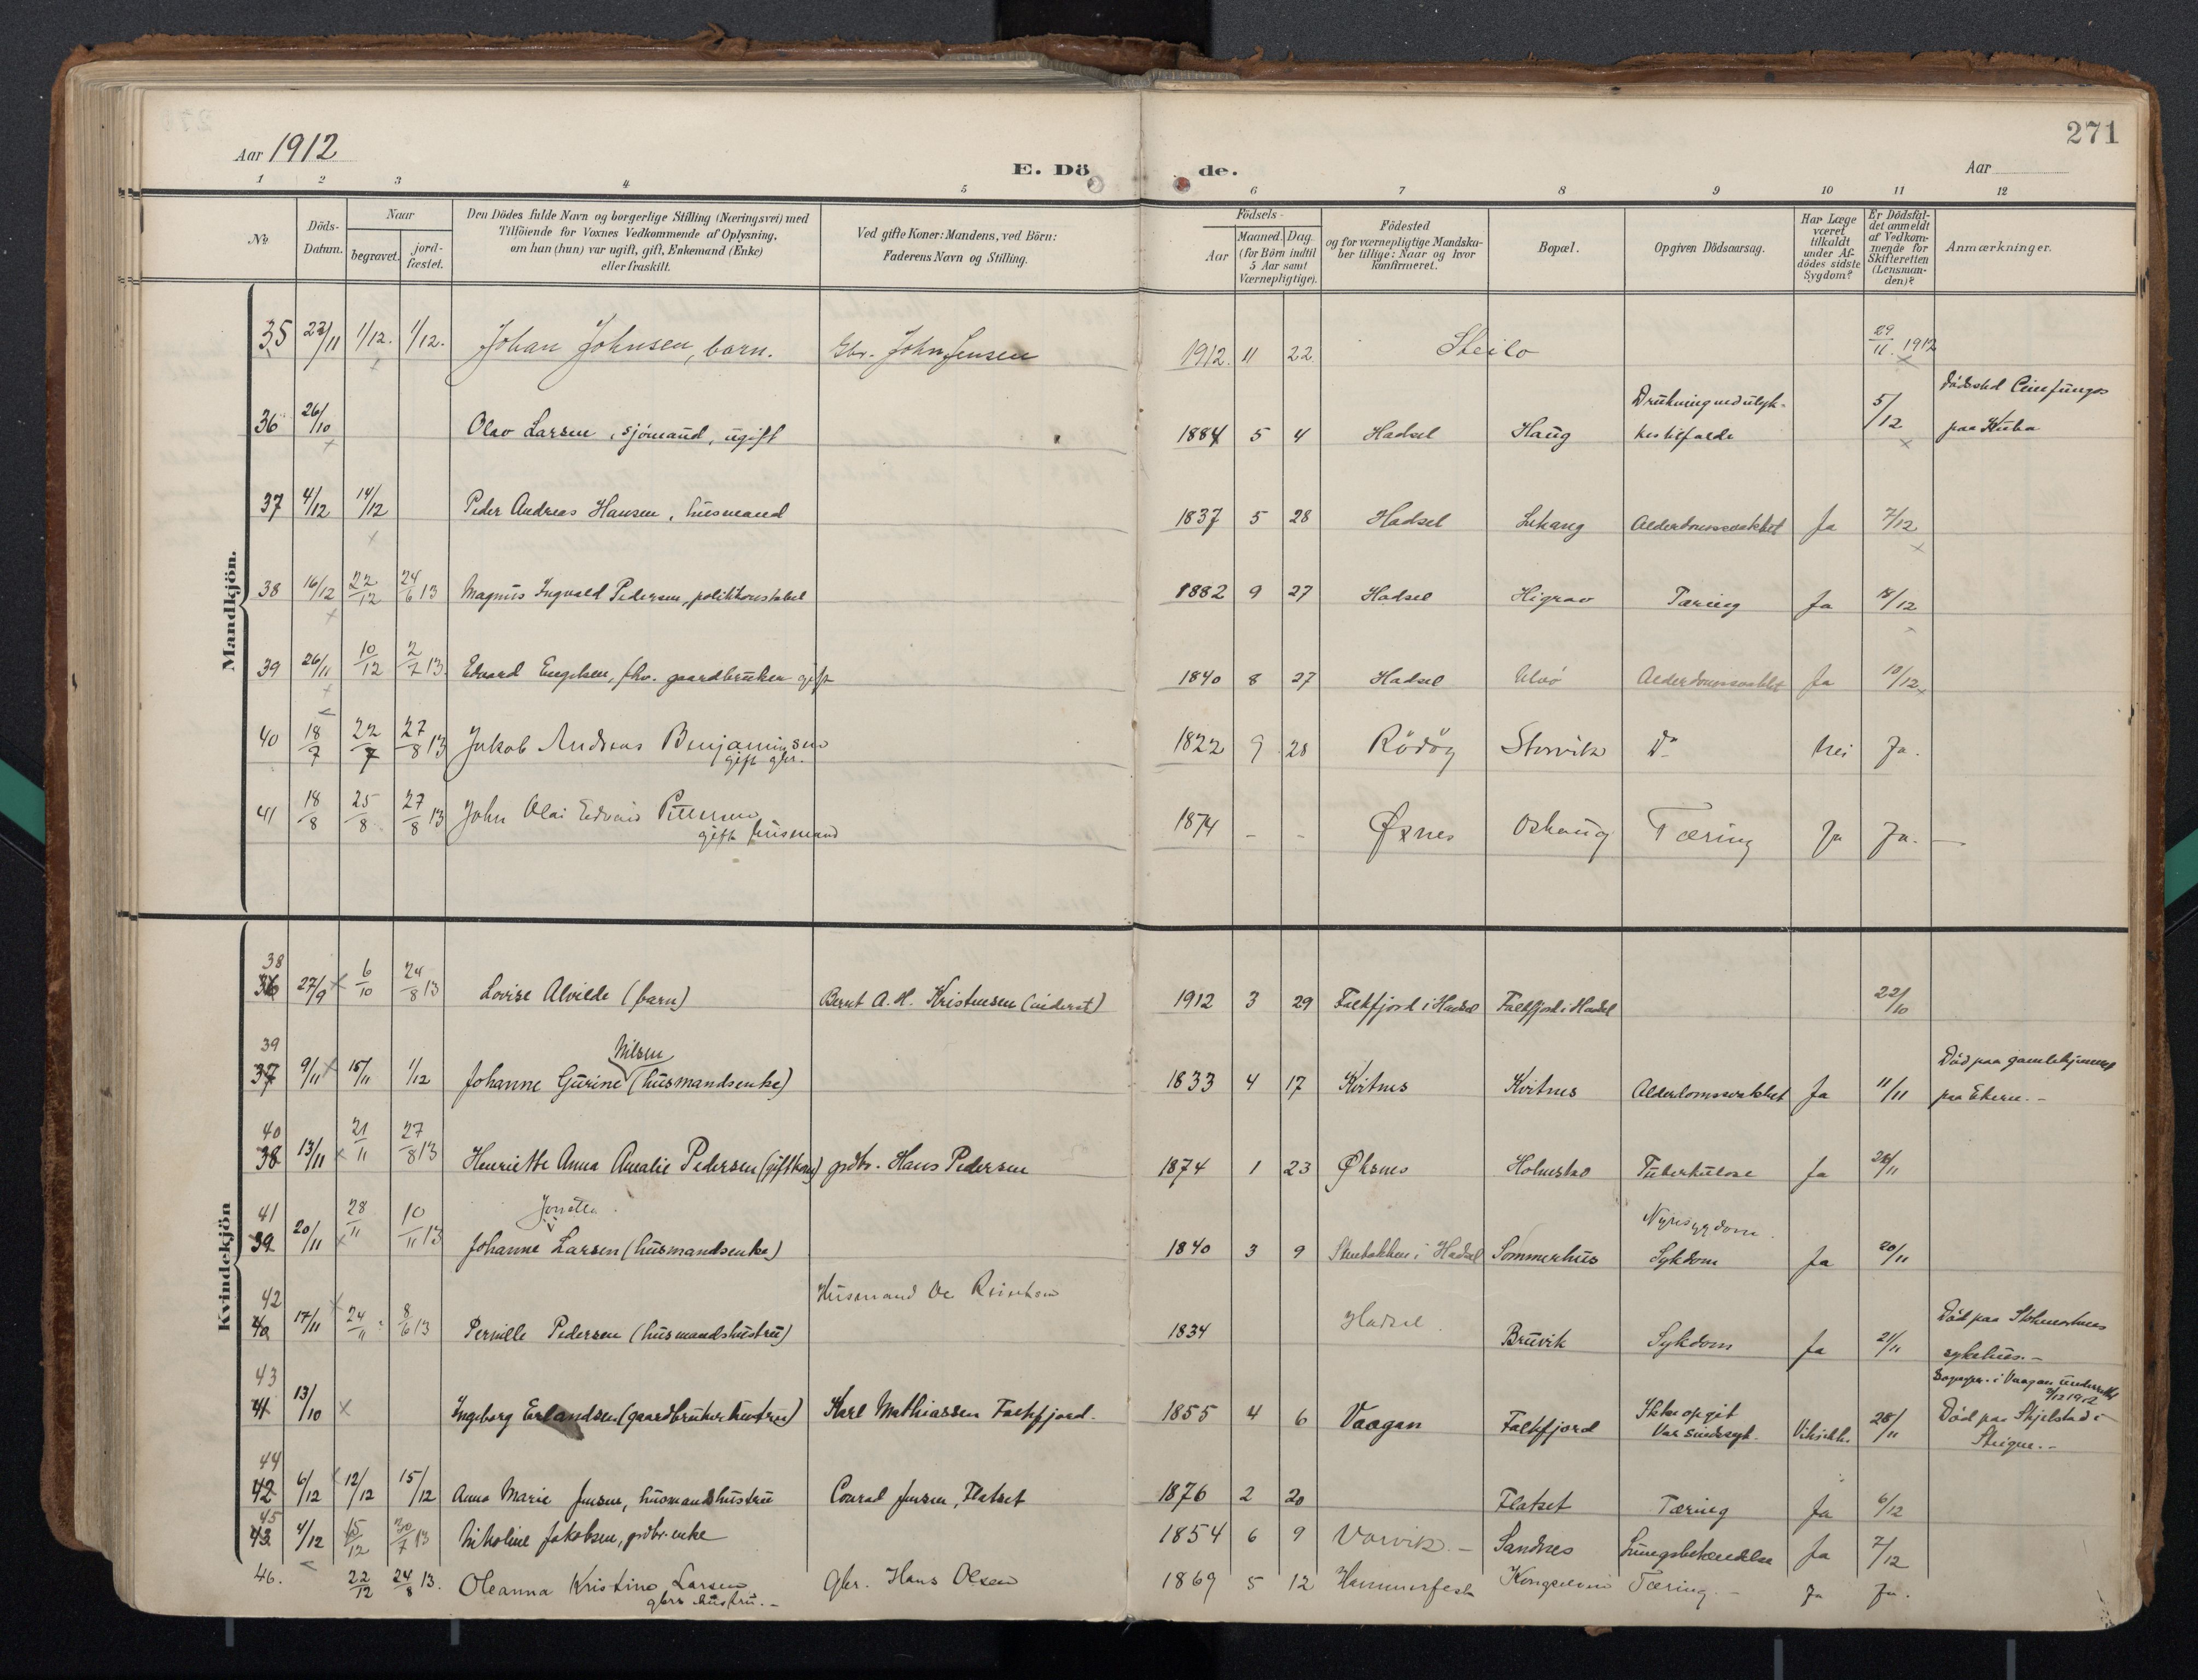 271
Aar 1912
E. Dö de.
Aar
1 2 3 4 5 6 7 8 9 10 11 12
No
Döds-Datum.
Naar
begravet.
jord-fæstet.
Den Dödes fulde Navn og borgerlige Stilling (Næringsvei) med
Tilföiende for Voxnes Vedkommende af Oplysning,
om han (hun) var ugift, gift, Enkemand (Enke)
eller fraskilt.
Ved gifte Koner: Mandens, ved Börn:
Faderens Navn og Stilling.
Födsels-
Aar
Maaned. Dag.
(for Börn indtil
5 Aar samt
Værnepligtige).
Födested
og for værnepligtige Mandska-
ber tillige: Naar og hvor
konfirmeret.
Bopæl.
Opgiven Dödsaarsag.
Har Læge
været
tilkaldt
under Af-
dödes sidste
Sygdom?
Er Dödsfal-
det anmeldt
af Vedkom-
mende for
Skifteretten
(Lensman-
den)?
Anmærkninger.
Mandkjön.
35 22/11 1/12. 1/12. Johan Johnsen, barn. Gbr. John Jensen 1912. 11 22. Steilo 29/11. 1912
36 26/10 Olav Larsen, sjömand, ugift 1884 5 4 Hadsel Haug Drukning ved ulyk-
kestilfælde 5/12 Dödssted Cienfungos
paa Kuba
37 4/12 14/12 Peder Andreas Hansen, husmand 1837 5 28 Hadsel Lekang Alderdomssvakhet Ja 7/12
38 16/12 22/12 24/6 13 Magnus Ingvald Pedersen, politikonstabel 1882 9 27 Hadsel Higrav Tæring Ja 18/12
39 26/11 10/12 2/7 13. Edvard Engelsen, fhv. gaardbruker gift 1840 8 27 Hadsel Ulvö Alderdomssvakhet Ja 10/12
40 18/7 22/7 27/8 13 Jakob Andreas Benjaminsen
gift gbr. 1822 9 28 Rödöy Storvik Do Nei Ja.
41 18/8 25/8 27/8 13 John Olai Edvard Pettersen
gift husmand 1874 - - Øxnes Oshaug Tæring Ja Ja. -
Kvindekjön
38
36 27/9 6/10 24/8 13 Lovise Alvilde (barn) Bernt A. H. Kristensen (inderst) 1912 3 29 Falkfjord i Hadsel Falkfjord i Hadsel 22/10
39
37 9/11 15/11 1/12 Johanne Gurine Nilsen (husmandsenke) 1833 4 17 Kvitnes Kvitnes Alderdomssvakhet Ja 11/11 Död paa gamlehjemmet
paa Ekren. -
40
38 13/11 21/11 27/8 13 Henriette Anna Amalie Pedersen (gift kone) grdbr. Hans Pedersen 1874 1 23 Øksnes Holmstad Tuberkulose Ja /11
41
39 20/11 28/11 10/11 13 Jonetta
Johanne Larsen (husmandsenke) 1840 3 9 Stenbakken i Hadsel Sommerhus Nyresygdom.
Sykdom Ja 20/11
42
40 17/11 24/11 8/6 13 Pernille Pedersen (husmandshustru) Husmand Ole 1834 Hadsel. Bruvik Sykdom Ja 21/11 Död paa Stokmarknes
sykehus. -
43
41 13/10 Ingeborg Erlandsen (gaardbrukerhustru) Karl Mathiassen Falkfjord. 1855 4 6 Vaagan Falkfjord Ikke opgit
Var sindssyk. i Vaagan underrettet
/12 1912
28/11 Död paa Skjelstad i
Steigen. -
44
42 6/12 12/12 15/12 Anna Marie Jensen, husmandshustru Conrad Jensen, Flatset 1876 2 20 Flatset Tæring Ja 6/12
45
43. 4/12 15/12 30/7 13 Nikoline Jakobsen, grdbr. enke 1854 6 9 Vorvik. - Sandnes Lungebetændelse Ja 7/12
46. 22/12 24/8 13. Oleanna Kristine Larsen
gbrs hustru. - Gbr. Hans Olsen 1869 5 12 Hammerfest Kongselven Tæring. - Ja Ja.